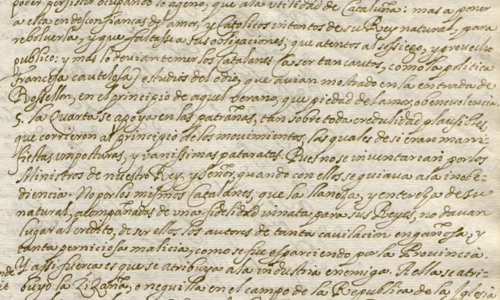 poder por justo ocupando lo ageno, que a la utilidad de Cataluña: mas a poner
a esta en desconfianças del amor, y Catolicos intentos de su Rey natural, para
rebolverla, y que faltase a sus obligaciones, que atentos al sosiego, y provecho
publico; y mas lo devian temer los Catalanes (a ser tan cautos, como la politica
francesa cautelosa) estudios del odio, que avian mostrado en la entrada de
Rosellon, en el principio de aquel verano, que piedad del amor, o benevolencia
5. la Quarta se apoya en las patrañas, tan sobre toda credulidad plausibles
que corrieron al principio de los movimientos, las quales de si eran mani-
fiestas imposturas, y vanissimas pataratas. Pues no se inventarian por los
Ministros de nuestro Rey, y Señor, quando con ellos se guiava a la inobe-
diencia. No por los mismos Catalanes, que la llaneza, y entereza de su
natural, acompañadas de una fidelidad innata para sus Reyes, no davan
lugar al credito, de ser ellos los autores de tanta cavilacion engañosa, y
tanta perniciosa malicia, como se fue esparciendo por la Provincia.
Y assi fuerça es que se atribuya a la industria enemiga. A ella se atri-
buyo la Zizaña, o neguilla en el campo de la Republica de la Iglesia